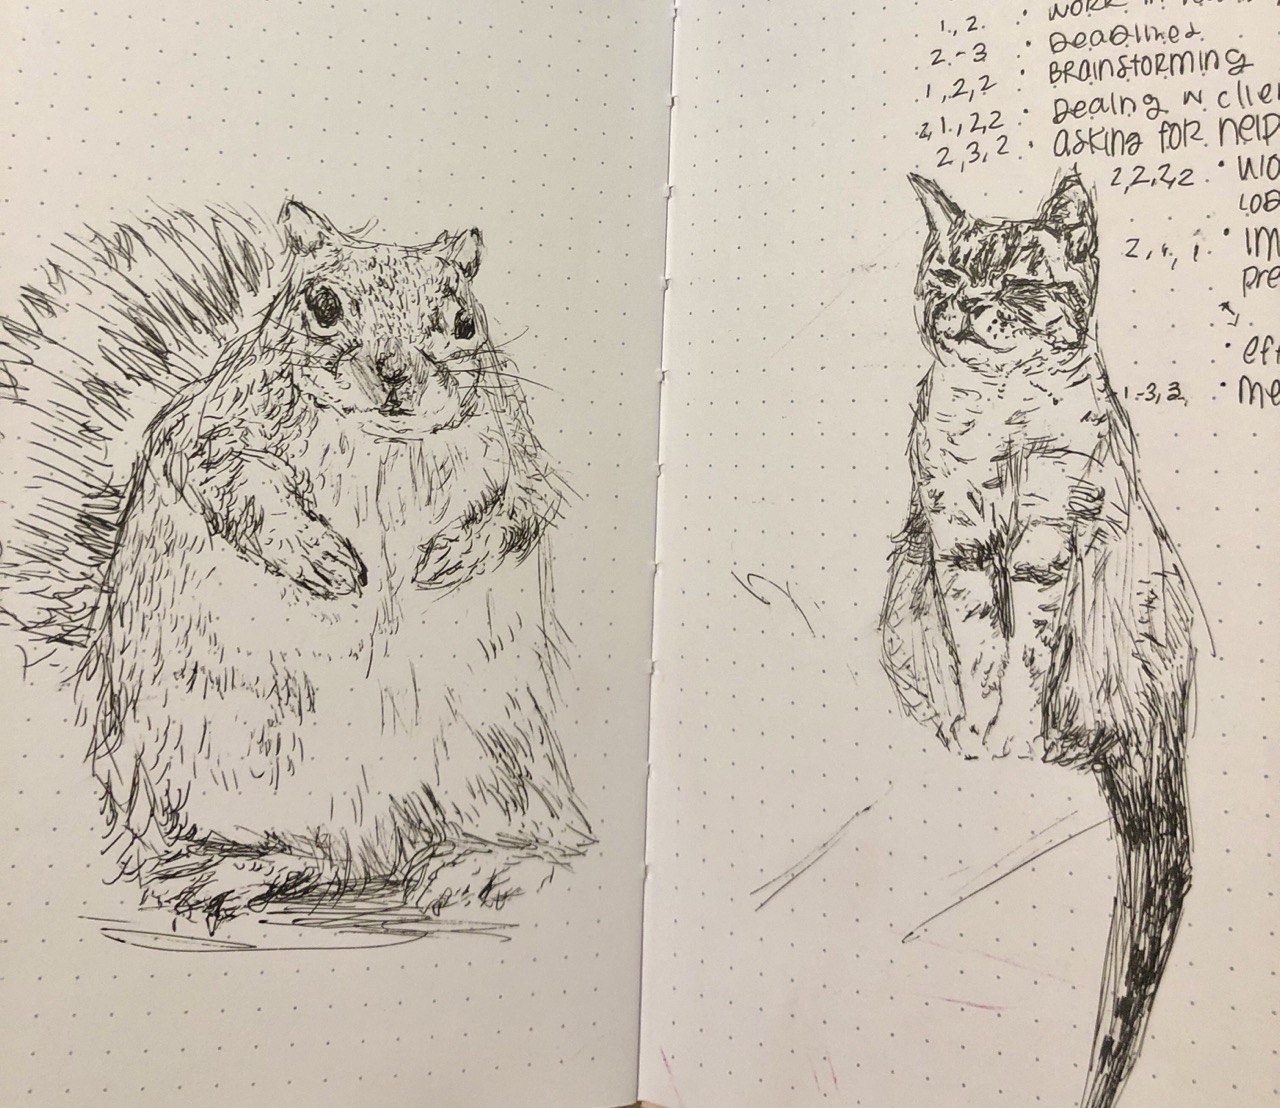 1., 2. · WORK IN
2.-3 · Deadlines
1,2,2 · BRAINSTORMING
2,1.,2,2 · Dealing w clie
2,3,2 · asking for help
2,2,2,2 · WO
2, 1, 1 · IM
pre
· eff
1-3,2, · me